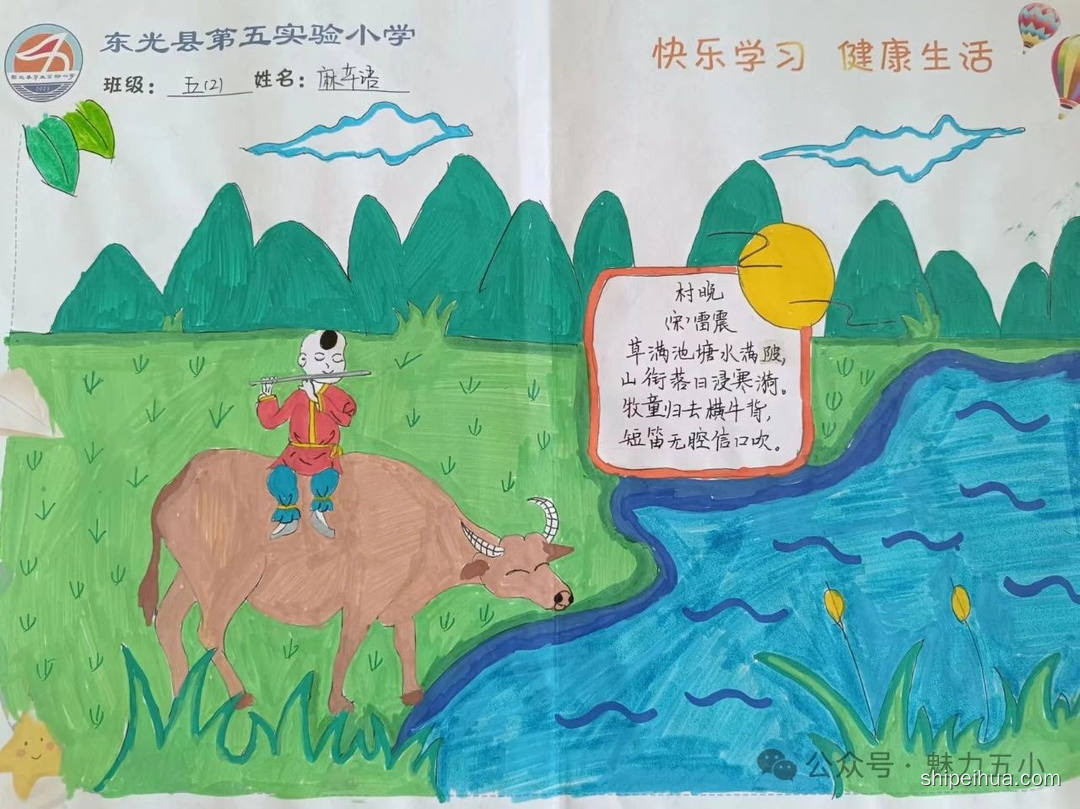 东光县第五实验小学
班级：五（2） 姓名：麻幸语
快乐学习 健康生活
村晚
（宋）雷震
草满池塘水满陂，
山衔落日浸寒漪。
牧童归去横牛背，
短笛无腔信口吹。
公众号·魅力五小
shipeihua.com